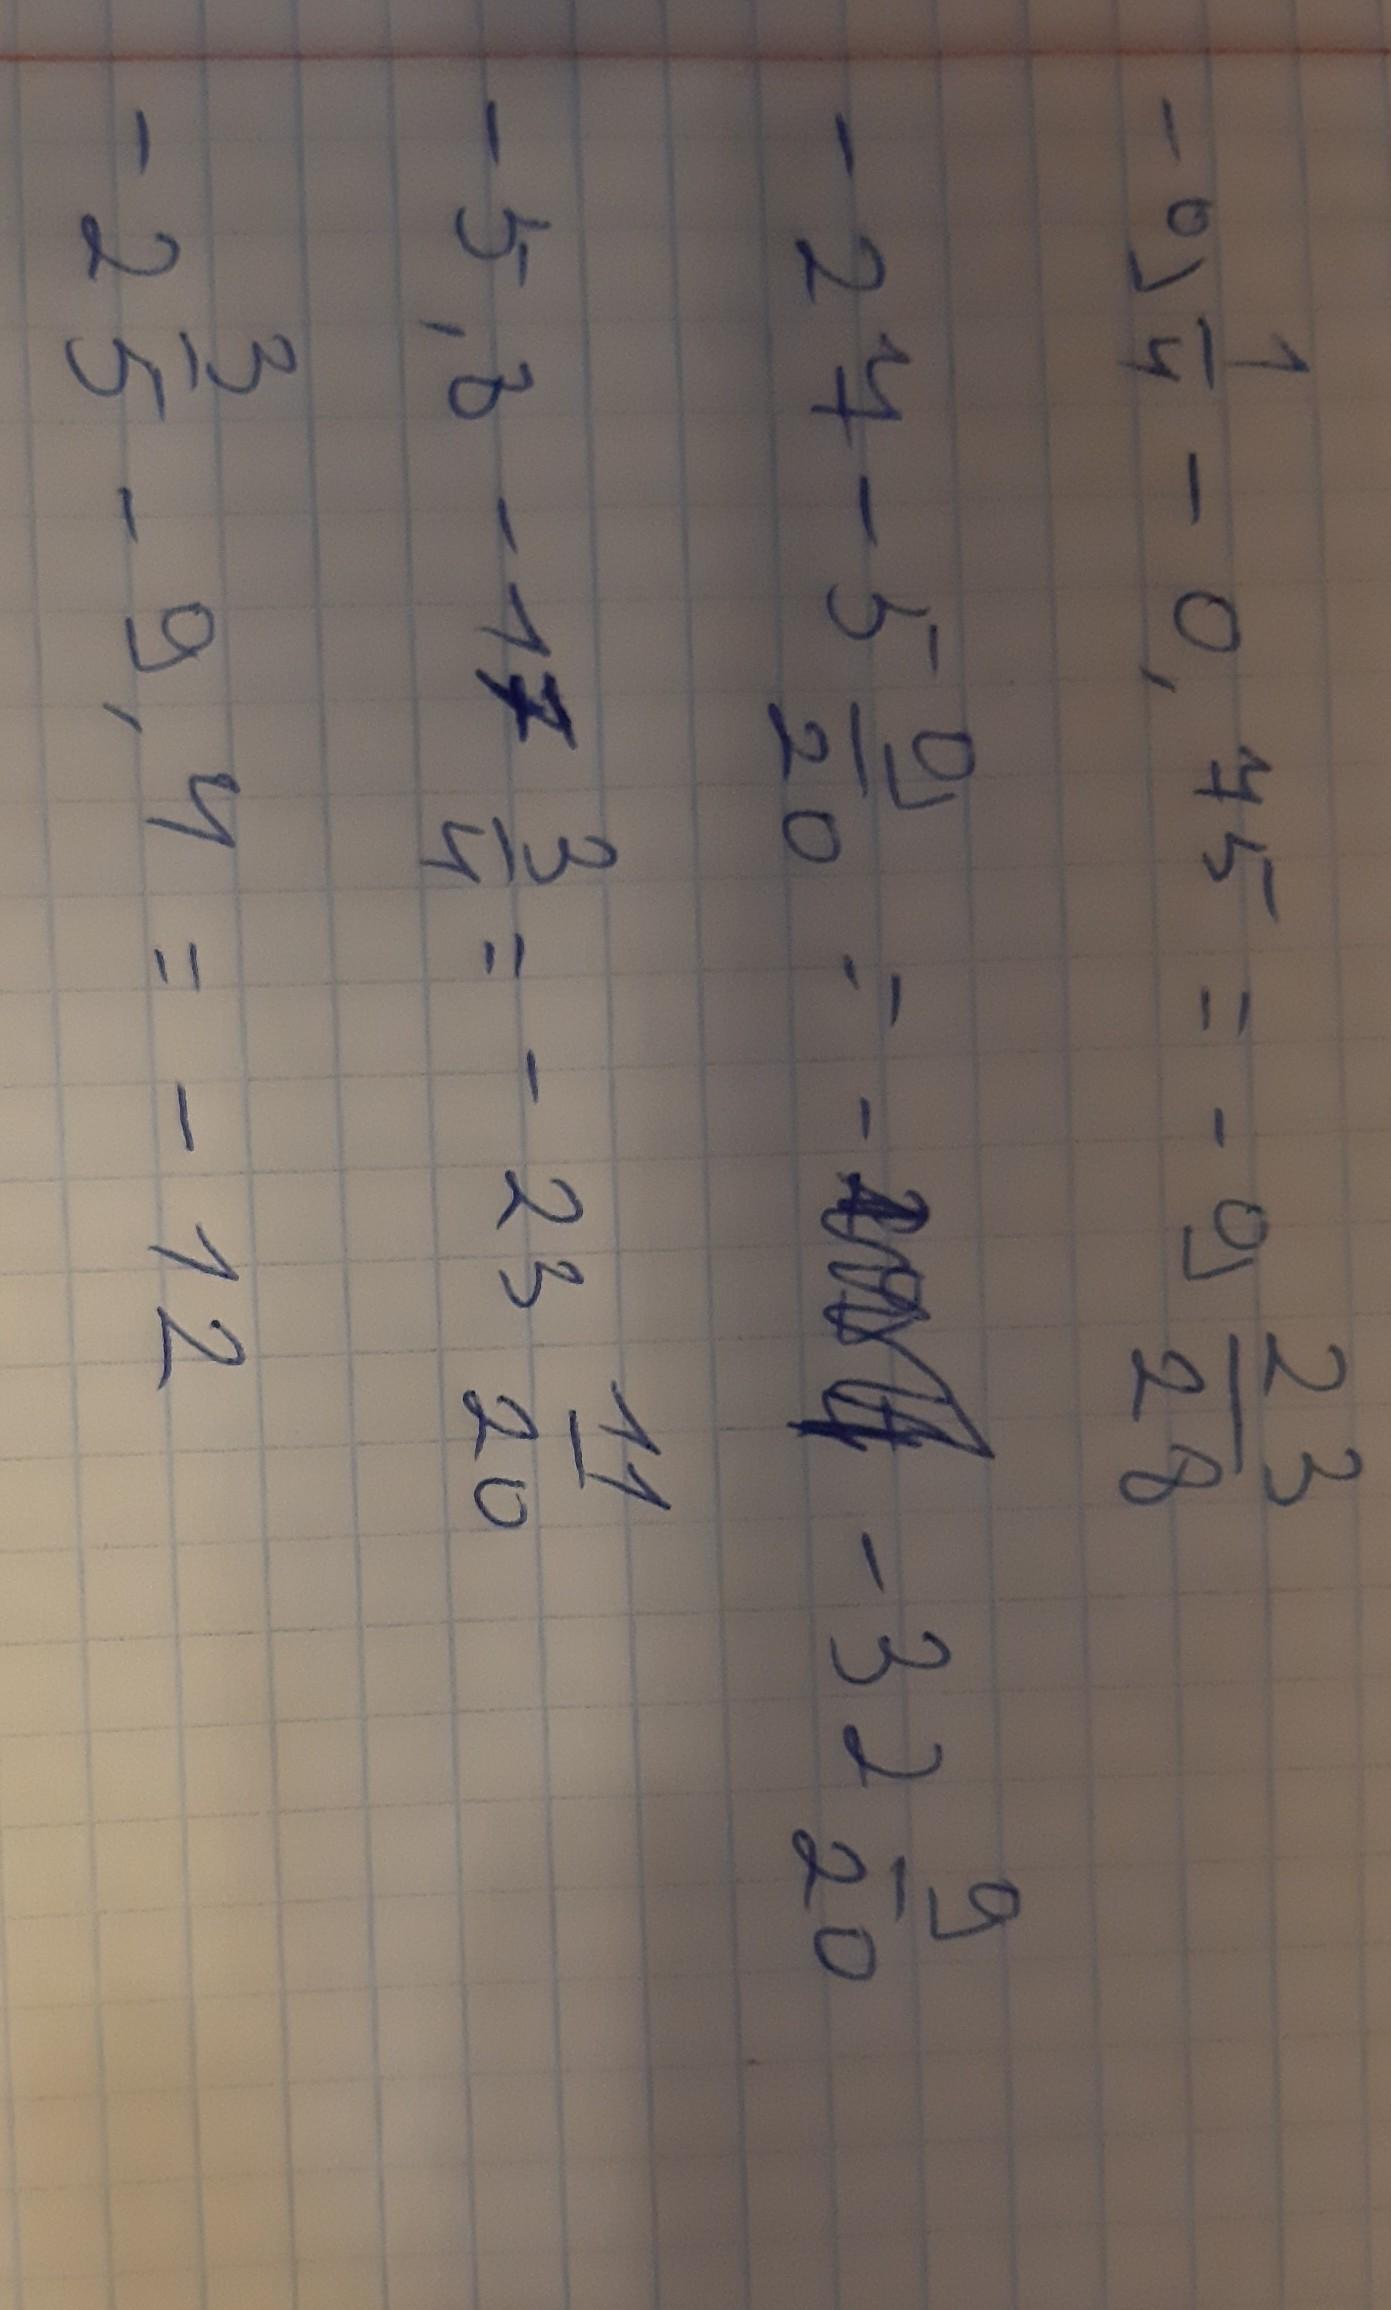 -9 1/4 - 0,45 = -9 23/28
-27 - 5 9/20 = - -32 9/20
-5,8 - 17 3/4 = -23 11/20
-2 3/5 - 9,4 = -12